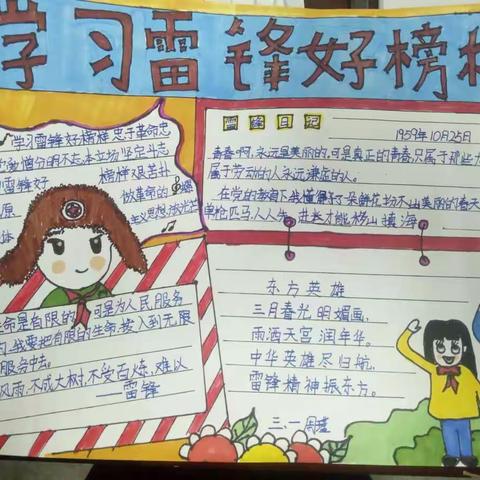 学习雷锋好榜样
学习雷锋好榜样 忠于革命忠
爱憎分明不忘本立场坚定斗志
雷锋好 榜样艰苦朴
原 做革命的
体 主义思想
雷锋日记
1959年10月25日
青春啊,永远是美丽的,可是真正的青春,只属于那些力
属于劳动的人,永远谦虚的人。
在党的教育下我懂得了 朵鲜花打扮不出美丽的春天
单枪匹马 才能移山填海
东方英雄
三月春光明媚画,
雨洒天宫润年华。
中华英雄尽归航,
雷锋精神振东方。
三、一 周
生命是有限的 可是为人民服务
的,我要把有限的生命 投入到无限
服务中去。
风雨,不成大树,不受百炼,难以
——雷锋